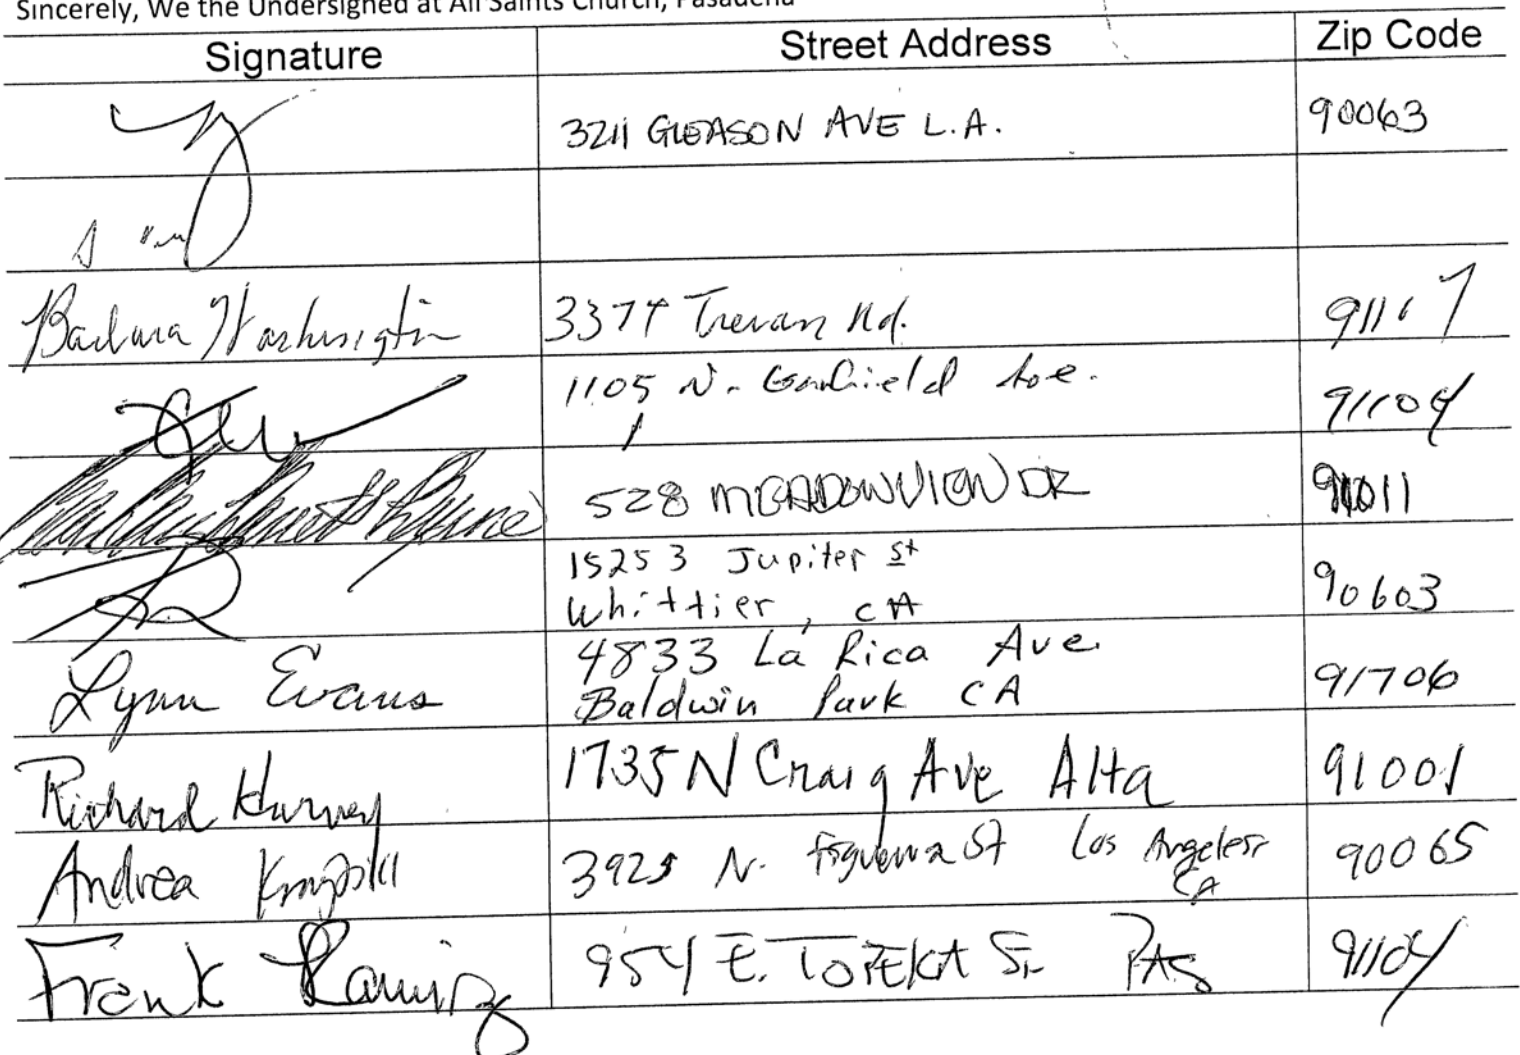 Sincerely, We the Undersigned at All Saints Church, Pasadena
Signature Street Address Zip Code
3211 GLEASON AVE L.A. 90063
Barbara Washington 3374 Trevan Rd. 91107
1105 N. Garfield Ave. 91104
528 MEADOWVIEW DR 91011
15253 Jupiter St 90603
Whittier, CA
Lynn Evans 4833 La Rica Ave. 91706
Baldwin Park CA
Richard Harvey 1735 N Craig Ave Alta 91001
Andrea 3925 N. Figueroa St Los Angeles 90065
CA
Frank Ramirez 954 E. TOPEKA St PAS 91104